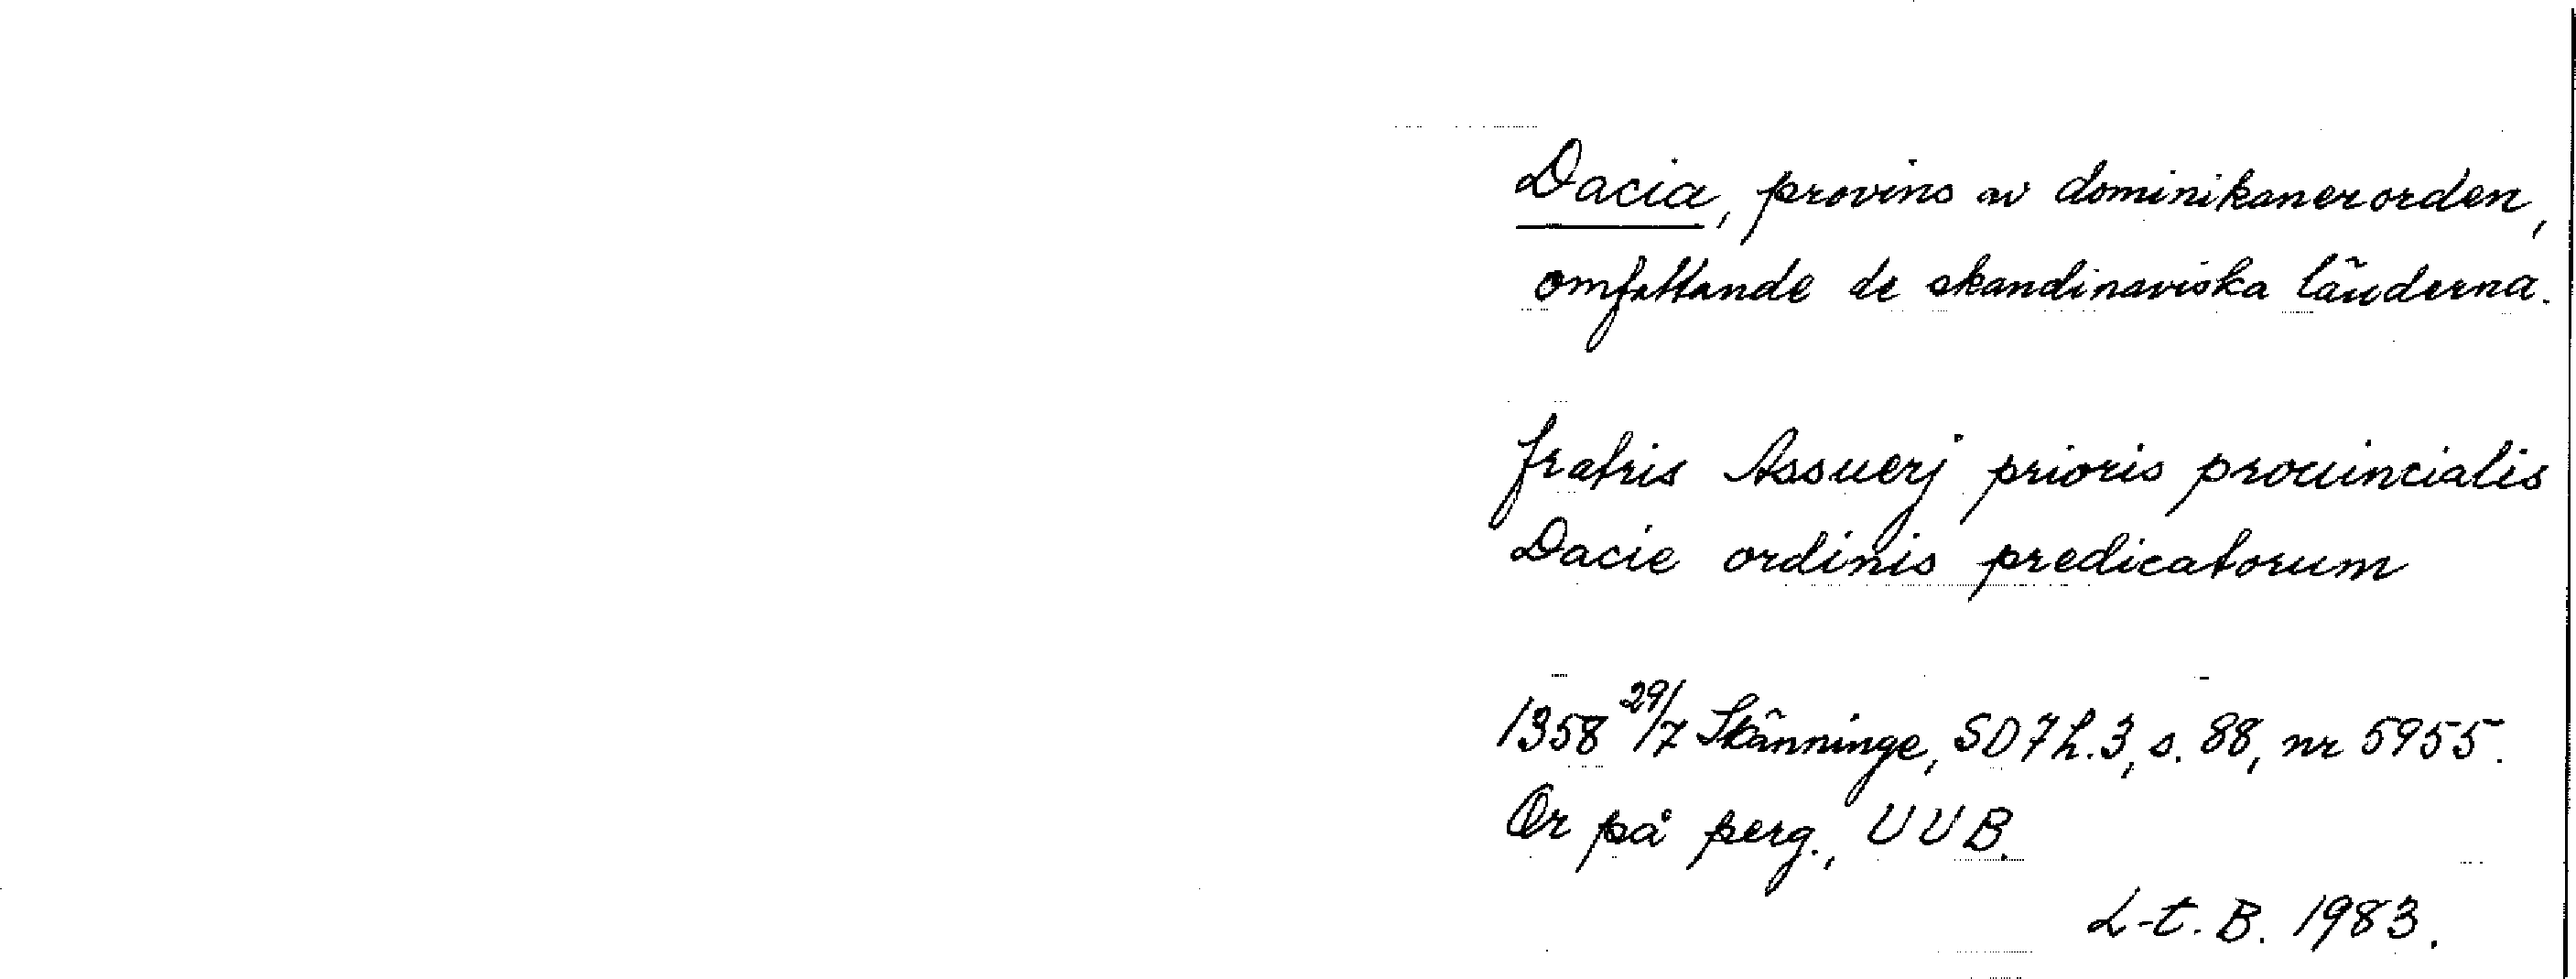 Dacia, provins av dominikanerorden,
omfattande de skandinaviska länderna.
fratris Assuerj prioris prouincialis
Dacie ordinis predicatorum
1358 29/7 Skänninge, SD 7 h. 3, s. 88, nr 5955.
Or på perg., UUB.
L-t. B. 1983.